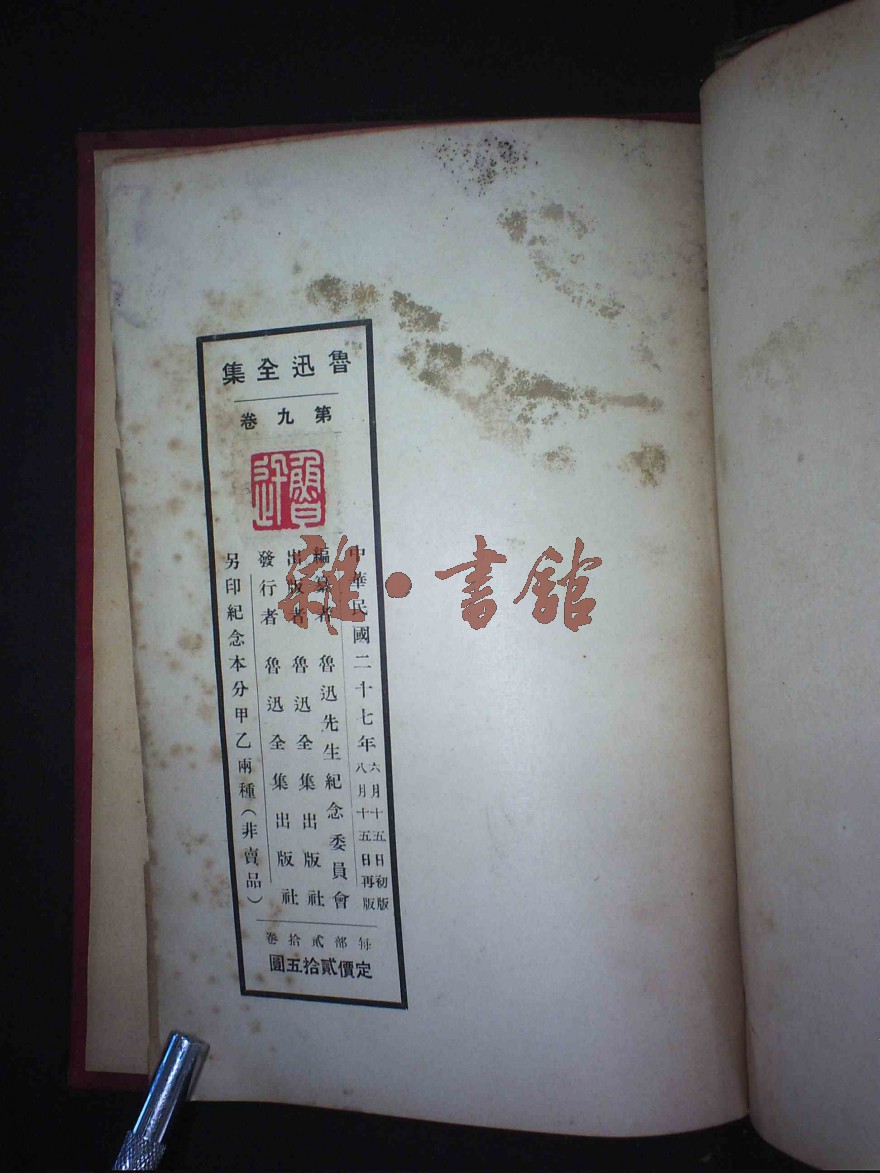 魯迅全集
第九卷
魯迅
中華民國二十七年六月十五日初版
八月十五日再版
編纂者 魯迅先生紀念委員會
出版者 魯迅全集出版社
發行者 魯迅全集出版社
另印紀念本分甲乙兩種(非賣品)
每部貳拾卷
定價貳拾五圓
雜·書館